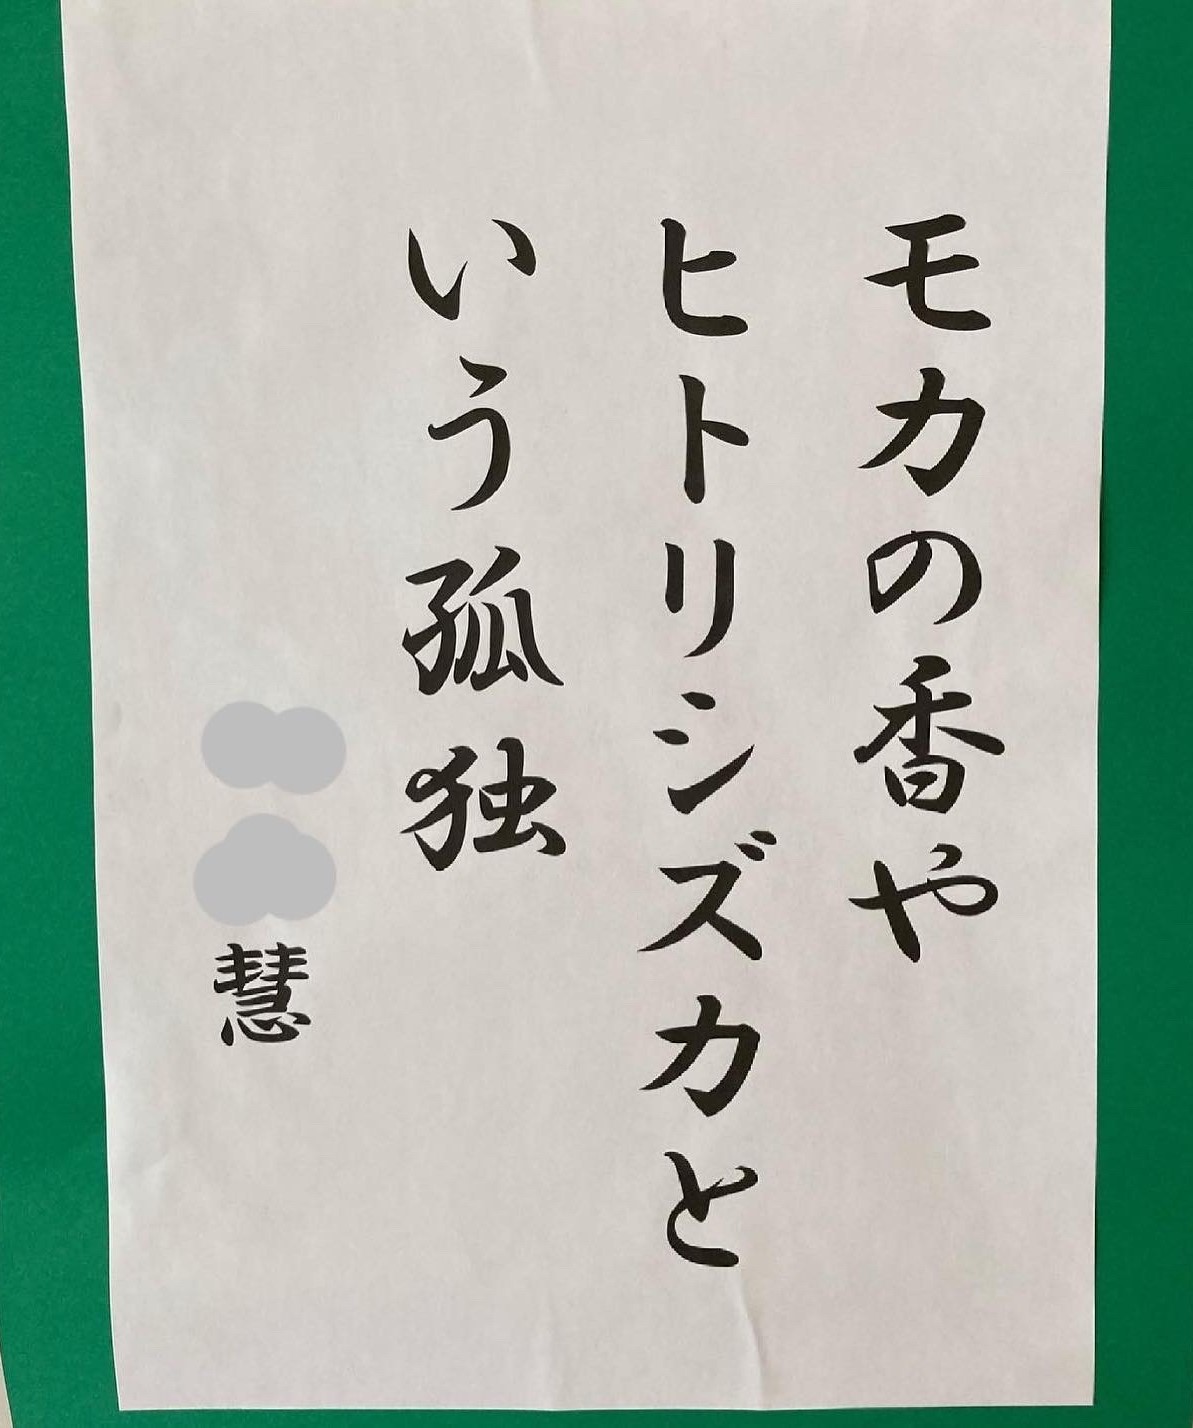 モカの香や
ヒトリシズカと
いう孤独
慧